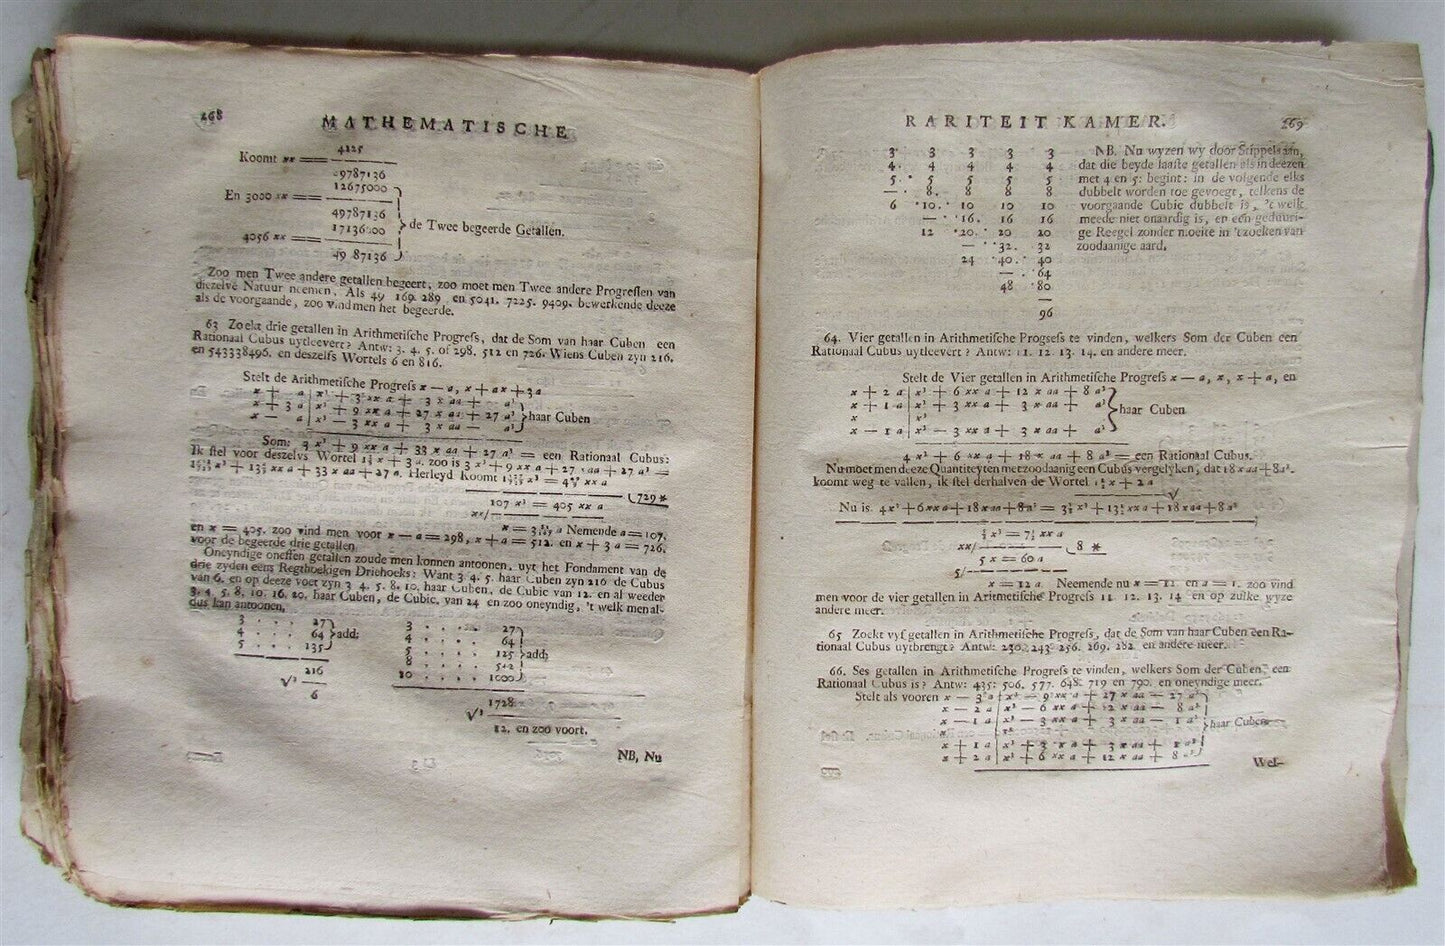 268
MATHEMATISCHE
4225
Koomt xx ==
49787136
12675000
En 3000 xx ==
49787136
17136000
4056 xx ==
49787136
de Twee begeerde Getallen.
Zoo men Twee andere getallen begeert, zoo moet men Twee andere Progressen van
diezelve Natuur neemen, Als 49 169. 289 en 5041. 7225. 9409. bewerkende deeze
als de voorgaande, zoo vind men het begeerde.
63 Zoekt drie getallen in Arithmetische Progress, dat de Som van haar Cuben een
Rationaal Cubus uytleevert? Antw: 3. 4. 5. of 298. 512 en 726. Wiens Cuben zyn 216.
en 543338496. en deszelfs Wortels 6 en 816.
Stelt de Arithmetische Progress x — a, x + a x + 3 a
x + a | x³ + 3 xx a + 3 x aa + a³
x + 3 a | x³ + 9 xx a + 27 x aa + 27 a³
x — a | x³ — 3 xx a + 3 x aa — a³
haar Cuben
Som: 3 x³ + 9 xx a + 33 x aa + 27 a³ = een Rationaal Cubus:
Ik stel voor deszelvs Wortel x + 3 a. zoo is 3 x³ + 9 xx a + 33 x aa + 27 a³ =
x³ + xx a + 33 x aa + 27 a. Herleyd Koomt x³ = xx a
729 *
107 x³ = 405 xx a
xx/
x = a Nemende a = 107.
en x = 405. zoo vind men voor x — a = 298, x + a = 512. en x + 3 a = 726.
voor de begeerde drie getallen
Oneyndige oneffen getallen zoude men konnen antoonen, uyt het Fondament van de
drie zyden eens Regthoekigen Driehoeks: Want 3. 4. 5. haar Cuben zyn 216 de Cubus
van 6. en op deeze voet zyn 3 4. 5. 8. 10. haar Cuben, de Cubic van 12. en al weeder
3. 4. 5. 8. 10. 16. 20. haar Cuben, de Cubic. van 24 en zoo oneyndig, 't welk men al-
dus kan antoonen,
3 . . . 27
4 . . . 64
5 . . . 135
add:
216
√³
6
3 . . . . 27
4 . . . . 64
5 . . . . 125
8 . . . . 512
10 . . . . 1000
add:
1728
√³
12. en zoo voort.
NB, Nu
RARITEIT KAMER.
269
3 3 3 3 3
4 . 4 4 4 4
5 . . 5 5 5 5
— . 8. 8 8 8
6 . 10. . 10 10 10
— . . 16. 16 16
12 . 20. . 20 20
— . . 32. 32
24 . 40. . 40
— . 64
48 . 80
—
96
NB. Nu wyzen wy door Stippels aan,
dat die beyde laaste getallen als in deezen
met 4 en 5: begint: in de volgende elks
dubbelt worden toe gevoegt, telkens de
voorgaande Cubic dubbelt is, 't welk
meede niet onaardig is, en een geduuri-
ge Reegel zonder moeite in 't zoeken van
zoodaanige aard,
64. Vier getallen in Arithmetische Progress te vinden, welkers Som der Cuben een
Rationaal Cubus uytleevert? Antw: 11. 12. 13. 14. en andere meer.
Stelt de Vier getallen in Arithmetische Progress x — a, x, x + a, en
x + 2 a | x³ + 6 xx a + 12 x aa + 8 a³
x + 1 a | x³ + 3 xx a + 3 x aa + a³
x | x³
x — 1 a | x³ — 3 xx a + 3 x aa + a³
haar Cuben
4 x³ + 6 xx a + 18 x aa + 8 a³ = een Rationaal Cubus.
Nu moet men deeze Quantiteyten met zoodaanig een Cubus vergelyken, dat 18 x aa + 8 a³.
koomt weg te vallen, ik stel derhalven de Wortel 1½ x + 2 a
√
Nu is. 4 x³ + 6 xx a + 18 x aa + 8 a³ = 3⅜ x³ + 13½ xx a + 18 x aa + 8 a³
⅝ x³ = 7½ xx a
xx/
8 *
5 x = 60 a
5/
x = 12 a. Neemende nu x = 12. en a = 1. zoo vind
men voor de vier getallen in Aritmetische Progress 11. 12. 13. 14 en op zulke wyze
andere meer.
65 Zoekt vyf getallen in Arithmetische Progress, dat de Som van haar Cuben een Ra-
tionaal Cubus uytbrengt? Antw: 230. 243. 256. 269. 282. en andere meer.
66. Ses getallen in Arithmetische Progress te vinden, welkers Som der Cuben, een
Rational Cubus is? Antw: 435: 506. 577. 648. 719 en 790. en oneyndige meer.
Stelt als vooren x — 3 a | x³ — 9 xx a + 27 x aa — 27 a³
x — 2 a | x³ — 6 xx a + 12 x aa — 8 a³
x — 1 a | x³ — 3 xx a + 3 x aa — 1 a³
x | x³
x + 1 a | x³ + 3 x a + 3 x aa + 1 a³
x + 2 a | x³ + 6 xx a + 12 x aa + 8 a³
haar Cuben
Wes-